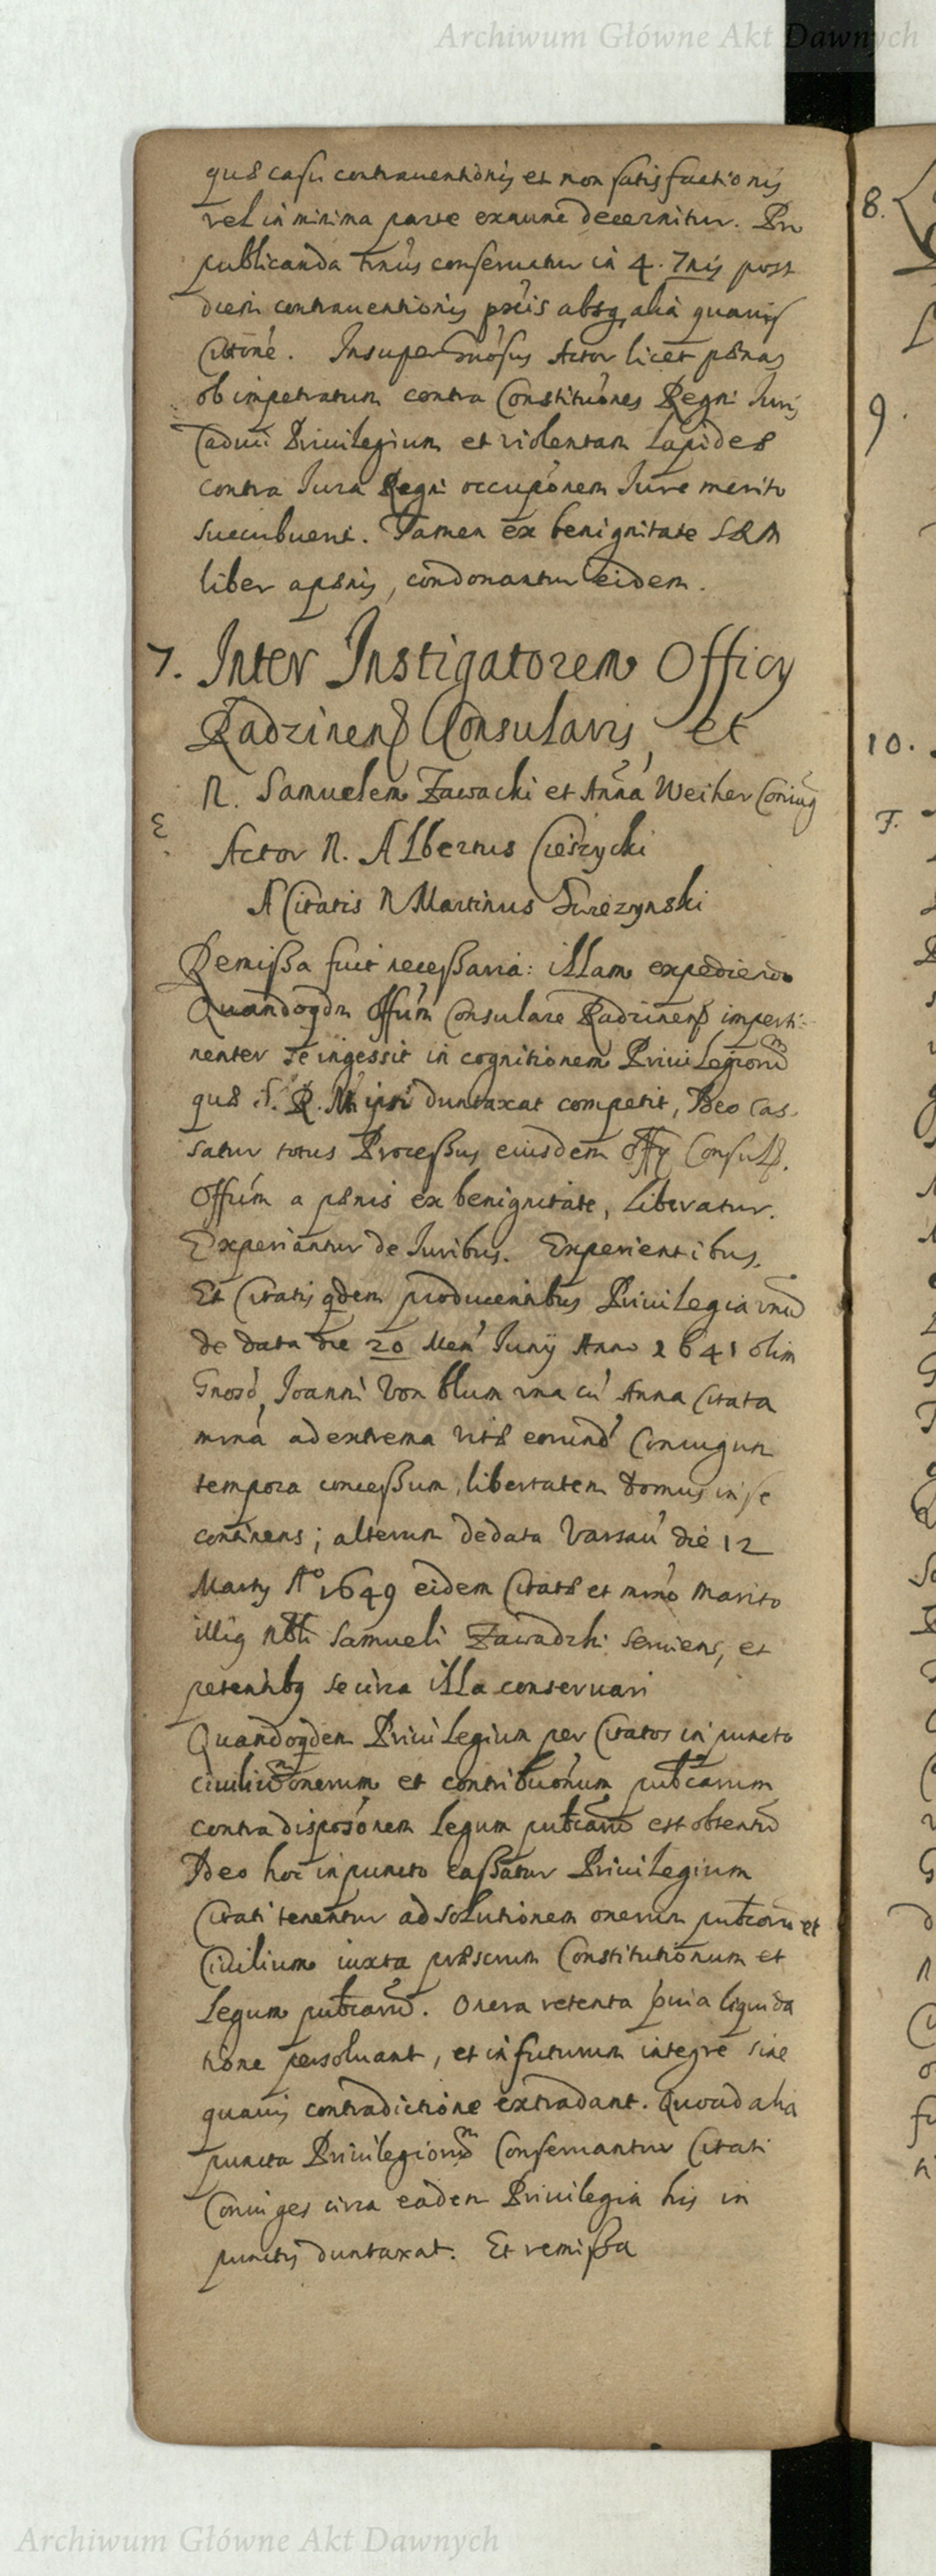 Archiwum Główne Akt Dawnych
quæ casu contrauentionis et non satisfactionis
vel in minima parte exnunc decernitur. Pro
publicanda trnus conseruatur in 4. 7nis post
diem contrauentionis pxis absq alia quauis
Cittoné. Insuper Gnosus Actor licet pænas
ob impetratum contra Constituónes Regni Juris
Caduci Priuilegium et violentam Lapides
contra Jura Regni occupónem Jure merito
succubuerit. Tamen ex benignitate SRM
liber apænis, condonantur eidem.
7. Inter Instigatorem Officy
Radzinens Consularis, et
N. Samuelem Zawacki et Anná Weiher Coniug
Actor N. Albertus Cieszycki
A Citatis N Martinus
Remissa fuit necessaria: illam expediendo
Quandoqdn Offúm Consulare Radzinens imperti-
nenter se ingessit in cognitionem Priuilegiorum
quæ S. R. M ipsi duntaxat competit, Ideo cas-
satur totus Processus eiusdem Offy Consuls.
Offúm a pænis ex benignitate, Liberatur.
Experiantur de Iuribus. Experientibus.
Et Citatis qdem producentibus Priuilegia vnu
de data die 20 Men Juny Anno 1641 olim
Gnoso, Joanni Von Blum vna cú Anna Citata
mná ad extrema vitæ eorund Coniugum
tempora concessum, libertatem domus in se
continens; alterum dedata Varsau die 12
Marty Aº 1649 eidem Citatæ et mno marito
illiq Nbli Samueli Zawadzki seruiens, et
petentibq se circa illa conseruari
Quandoqdem Priuilegium per Citatos in puncto
ciuiliu onerum et contribuónum pubcarum
contra disposónem Legum pubcaru est obtentu
Ideo hoc in puncto cassatur Priuilegium
Citati tenentur ad solutionem onerum pubcoru et
Ciuilium iuxta præscrum Constitutionum et
Legum pubcaru. Onera retenta puia liquida
tione persoluant, et in futurum integre sine
quauis contradictione extradant. Quoad alia
puncta Priuilegioru Conseruantur Citati
Coniuges circa eadem Priuilegia his in
punctis duntaxat. Et remissa
8.
9.
10.
F.
Archiwum Główne Akt Dawnych